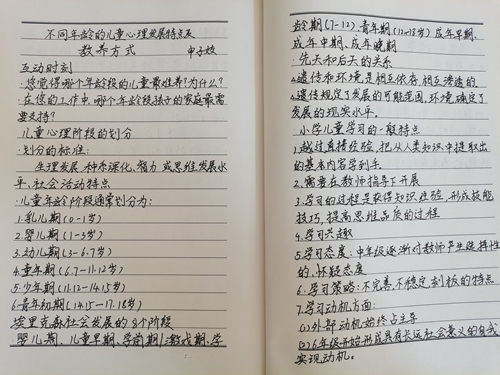 不同年龄的儿童心理发展特点及
教养方式 申子姣
互动时刻
·您觉得哪个年龄段的儿童最难养?为什么?
·在您的工作中,哪个年龄段孩子的家庭最需
要支持?
·儿童心理阶段的划分
·划分的标准:
生理发展,种系演化,智力或思维发展水
平,社会活动特点
·儿童年龄阶段通常划分为:
1.乳儿期(0-1岁)
2.婴儿期(1-3岁)
3.幼儿期(3-6.7岁)
4.童年期(6.7-11.12岁)
5.少年期(11.12-14.15岁)
6.青年初期(14.15-17.18岁)
埃里克森社会发展的8个阶段
婴儿期、儿童早期、学前期/游戏期、学
龄期(7-12)、青年期(12-18岁)成年早期、
成年中期、成年晚期
·先天和后天的关系
1.遗传和环境是相互依存,相互渗透的
2.遗传规定了发展的可能范围,环境确定了
发展的现实水平。
·小学儿童学习的一般特点
1.越过直接经验,把从人类知识中提取出
的基本内容学到手。
2.需要在教师指导下开展
3.学习的过程是获得知识经验,形成技能
技巧,提高思维品质的过程
4.学习兴趣
5.学习态度:中年级逐渐对教师产生选择性
的、怀疑态度
6.学习策略:不完善,不稳定,刻板的特点
7.学习动机方面:
(1)外部动机始终占主导
(2)6年级开始形成具有长远社会意义的自我
实现动机。